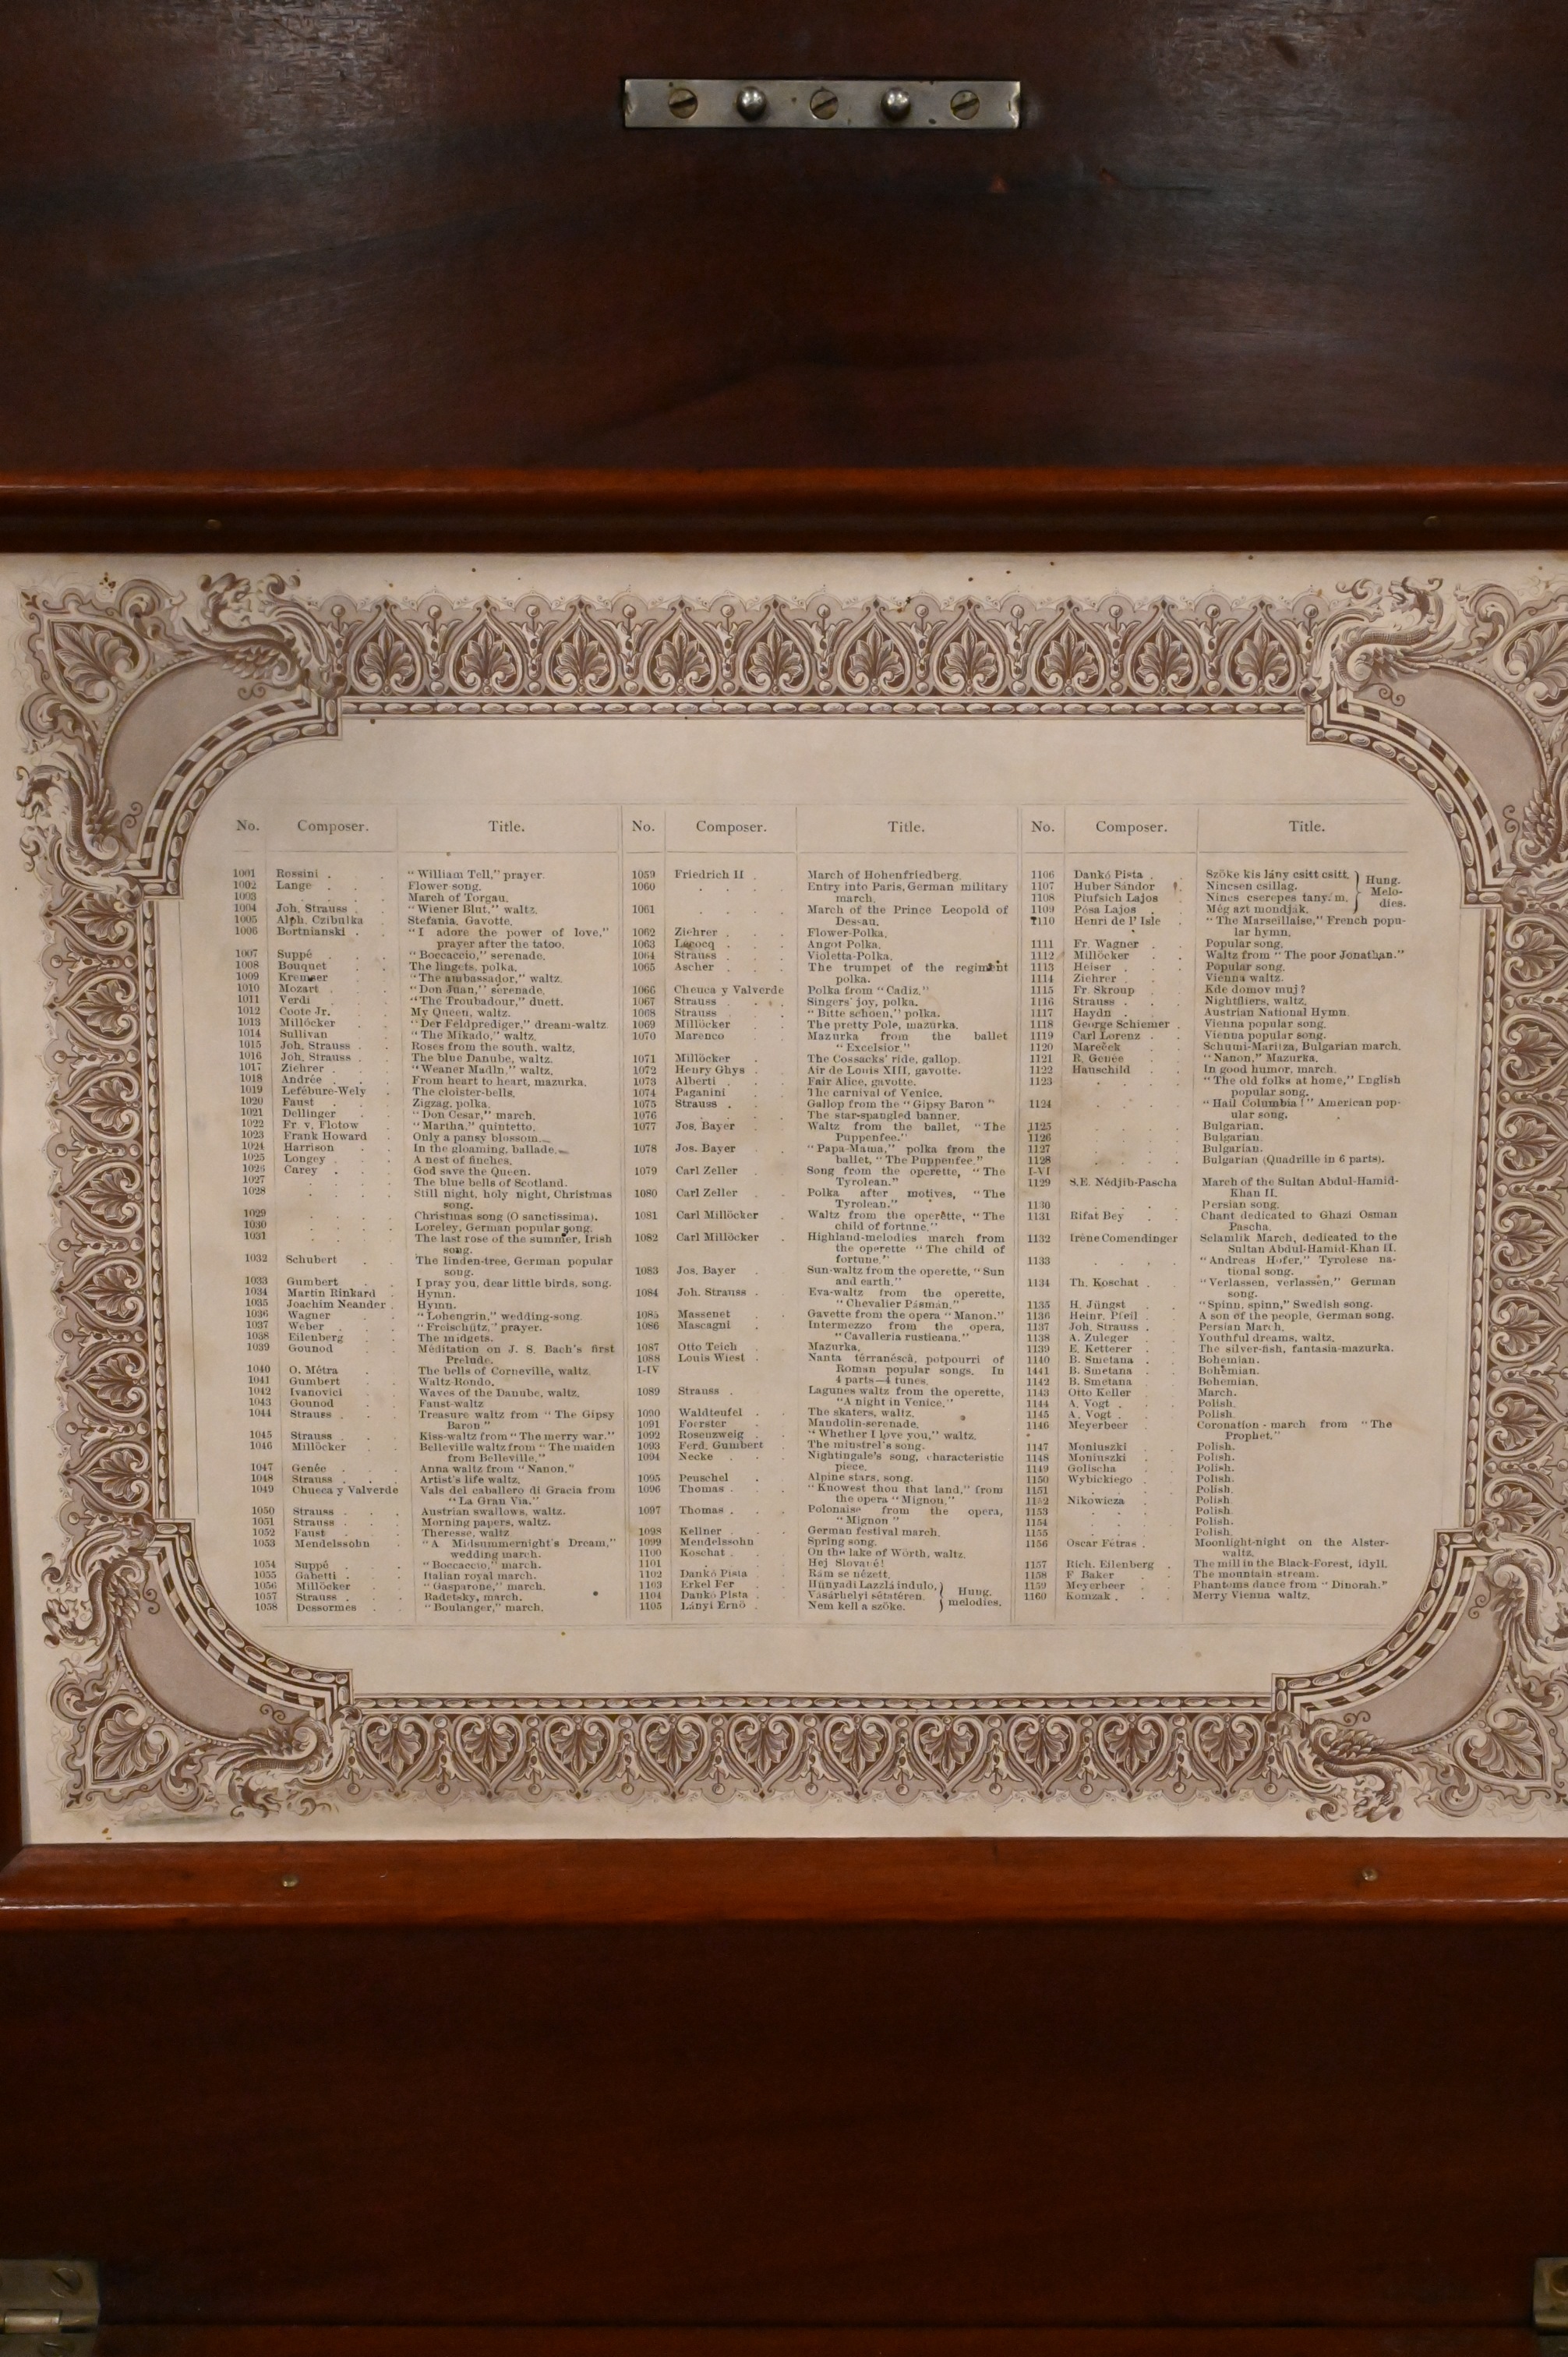 No. Composer. Title.
1001 Rossini . "William Tell," prayer.
1002 Lange . . Flower song.
1003 . . . March of Torgau.
1004 Joh. Strauss . "Wiener Blut," waltz.
1005 Alph. Czibulka Stefania, Gavotte.
1006 Bortnianski . "I adore the power of love,"
prayer after the tatoo.
1007 Suppé . . "Boccaccio," serenade.
1008 Bouquet . . The lingets, polka.
1009 Kremser . "The ambassador," waltz.
1010 Mozart . . "Don Juan," serenade.
1011 Verdi . . "The Troubadour," duett.
1012 Coote Jr. . My Queen, waltz.
1013 Millöcker . "Der Feldprediger," dream-waltz
1014 Sullivan . "The Mikado," waltz.
1015 Joh. Strauss . Roses from the south, waltz.
1016 Joh. Strauss . The blue Danube, waltz.
1017 Ziehrer . . "Weaner Madln," waltz.
1018 Andrée . . From heart to heart, mazurka.
1019 Lefébure-Wely . The cloister-bells.
1020 Faust . . Zigzag, polka.
1021 Dellinger . "Don Cesar," march.
1022 Fr. v. Flotow . "Martha," quintetto.
1023 Frank Howard . Only a pansy blossom.
1024 Harrison . In the gloaming, ballade.
1025 Longey . . A nest of finches.
1026 Carey . . God save the Queen.
1027 . . . The blue bells of Scotland.
1028 . . . Still night, holy night, Christmas
song.
1029 . . . Christmas song (O sanctissima).
1030 . . . Loreley, German popular song.
1031 . . . The last rose of the summer, Irish
song.
1032 Schubert . . The linden-tree, German popular
song.
1033 Gumbert . . I pray you, dear little birds, song.
1034 Martin Rinkard . Hymn.
1035 Joachim Neander . Hymn.
1036 Wagner . . "Lohengrin," wedding-song.
1037 Weber . . "Freischütz," prayer.
1038 Eilenberg . . The midgets.
1039 Gounod . . Méditation on J. S. Bach's first
Prelude.
1040 O. Métra . . The bells of Corneville, waltz.
1041 Gumbert . . Waltz-Rondo.
1042 Ivanovici . . Waves of the Danube, waltz.
1043 Gounod . . Faust-waltz
1044 Strauss . . Treasure waltz from "The Gipsy
Baron"
1045 Strauss . . Kiss-waltz from "The merry war."
1046 Millöcker . . Belleville waltz from "The maiden
from Belleville."
1047 Genée . . Anna waltz from "Nanon."
1048 Strauss . . Artist's life waltz.
1049 Chueca y Valverde Vals del caballero di Gracia from
"La Gran Via."
1050 Strauss . . Austrian swallows, waltz.
1051 Strauss . . Morning papers, waltz.
1052 Faust . . Theresse, waltz
1053 Mendelssohn . "A Midsummernight's Dream,"
wedding march.
1054 Suppé . . "Boccaccio," march.
1055 Gabetti . . Italian royal march.
1056 Millöcker . . "Gasparone," march.
1057 Strauss . . Radetsky, march.
1058 Dessormes . . "Boulanger," march.
No. Composer. Title.
1059 Friedrich II . March of Hohenfriedberg.
1060 . . . Entry into Paris, German military
march.
1061 . . . March of the Prince Leopold of
Dessau.
1062 Ziehrer . . Flower-Polka.
1063 Lecocq . . Angot Polka.
1064 Strauss . . Violetta-Polka.
1065 Ascher . . The trumpet of the regiment
polka.
1066 Chueca y Valverde Polka from "Cadiz."
1067 Strauss . . Singers' joy, polka.
1068 Strauss . . "Bitte schoen," polka.
1069 Millöcker . The pretty Pole, mazurka.
1070 Marenco . Mazurka from the ballet
"Excelsior."
1071 Millöcker . The Cossacks' ride, gallop.
1072 Henry Ghys . Air de Louis XIII, gavotte.
1073 Alberti . . Fair Alice, gavotte.
1074 Paganini . . The carnival of Venice.
1075 Strauss . . Gallop from the "Gipsy Baron"
1076 . . . The star-spangled banner.
1077 Jos. Bayer . Waltz from the ballet, "The
Puppenfee."
1078 Jos. Bayer . "Papa-Mama," polka from the
ballet, "The Puppenfee."
1079 Carl Zeller . Song from the operette, "The
Tyrolean."
1080 Carl Zeller . Polka after motives, "The
Tyrolean."
1081 Carl Millöcker . Waltz from the operette, "The
child of fortune."
1082 Carl Millöcker . Highland-melodies march from
the operette "The child of
fortune."
1083 Jos. Bayer . Sun-waltz from the operette, "Sun
and earth."
1084 Joh. Strauss . Eva-waltz from the operette,
"Chevalier Pásmán."
1085 Massenet . Gavotte from the opera "Manon."
1086 Mascagni . Intermezzo from the opera,
"Cavalleria rusticana."
1087 Otto Teich . Mazurka.
1088 Louis Wiest . Nanta térranéscâ, potpourri of
I-IV Roman popular songs. In
4 parts—4 tunes.
1089 Strauss . Lagunes waltz from the operette,
"A night in Venice."
1090 Waldteufel . The skaters, waltz.
1091 Foerster . Mandolin-serenade.
1092 Rosenzweig . "Whether I love you," waltz.
1093 Ferd. Gumbert . The minstrel's song.
1094 Necke . . Nightingale's song, characteristic
piece.
1095 Peuschel . Alpine stars, song.
1096 Thomas . . "Knowest thou that land," from
the opera "Mignon."
1097 Thomas . . Polonaise from the opera,
"Mignon"
1098 Kellner . . German festival march.
1099 Mendelssohn . Spring song.
1100 Koschat . . On the lake of Wörth, waltz.
1101 . . . Hej Slované!
1102 Dankó Pista . Rám se nézett.
1103 Erkel Fer . Húnyadi Lazzlá indulo,
1104 Dankó Pista . Vásárhelyi sétatéren. Hung.
1105 Lányi Ernö . Nem kell a szöke. melodies.
No. Composer. Title.
1106 Dankó Pista . Szöke kis lány csitt csitt.
1107 Huber Sándor . Nincsen csillag. Hung.
1108 Piufsich Lajos Nincs cserepes tanyám. Melo-
1109 Pósa Lajos . Még azt mondják. dies.
1110 Henri de l' Isle "The Marseillaise," French popu-
lar hymn.
1111 Fr. Wagner . Popular song.
1112 Millöcker . Waltz from "The poor Jonathan."
1113 Heiser . . Popular song.
1114 Ziehrer . . Vienna waltz.
1115 Fr. Skroup . Kde domov muj?
1116 Strauss . . Nightfliers, waltz.
1117 Haydn . . Austrian National Hymn.
1118 George Schiemer . Vienna popular song.
1119 Carl Lorenz . Vienna popular song.
1120 Mareček . . Schumi-Mariiza, Bulgarian march.
1121 R. Genée . "Nanon," Mazurka.
1122 Hauschild . In good humor, march.
1123 . . . "The old folks at home," English
popular song.
1124 . . . "Hail Columbia!" American pop-
ular song.
1125 . . . Bulgarian.
1126 . . . Bulgarian.
1127 . . . Bulgarian.
1128 . . . Bulgarian (Quadrille in 6 parts).
I-VI
1129 S.E. Nédjib-Pascha March of the Sultan Abdul-Hamid-
Khan II.
1130 . . . Persian song.
1131 Rifat Bey . Chant dedicated to Ghazi Osman
Pascha.
1132 Irène Comendinger Selamlik March, dedicated to the
Sultan Abdul-Hamid-Khan II.
1133 . . . "Andreas Hofer," Tyrolese na-
tional song.
1134 Th. Koschat . "Verlassen, verlassen," German
song.
1135 H. Jüngst . "Spinn, spinn," Swedish song.
1136 Heinr. Pfeil . A son of the people, German song.
1137 Joh. Strauss . Persian March.
1138 A. Zuleger . Youthful dreams, waltz.
1139 E. Ketterer . The silver-fish, fantasia-mazurka.
1140 B. Smetana . Bohemian.
1441 B. Smetana . Bohemian.
1142 B. Smetana . Bohemian.
1143 Otto Keller . March.
1144 A. Vogt . . Polish.
1145 A. Vogt . . Polish.
1146 Meyerbeer . Coronation-march from "The
Prophet."
1147 Moniuszki . Polish.
1148 Moniuszki . Polish.
1149 Golischa . Polish.
1150 Wybickiego . Polish.
1151 . . . Polish.
1152 Nikowicza . Polish.
1153 . . . Polish.
1154 . . . Polish.
1155 . . . Polish.
1156 Oscar Fétras . Moonlight-night on the Alster-
waltz.
1157 Rich. Eilenberg . The mill in the Black-Forest, idyll.
1158 F Baker . . The mountain stream.
1159 Meyerbeer . Phantoms dance from "Dinorah."
1160 Komzak . . Merry Vienna waltz.